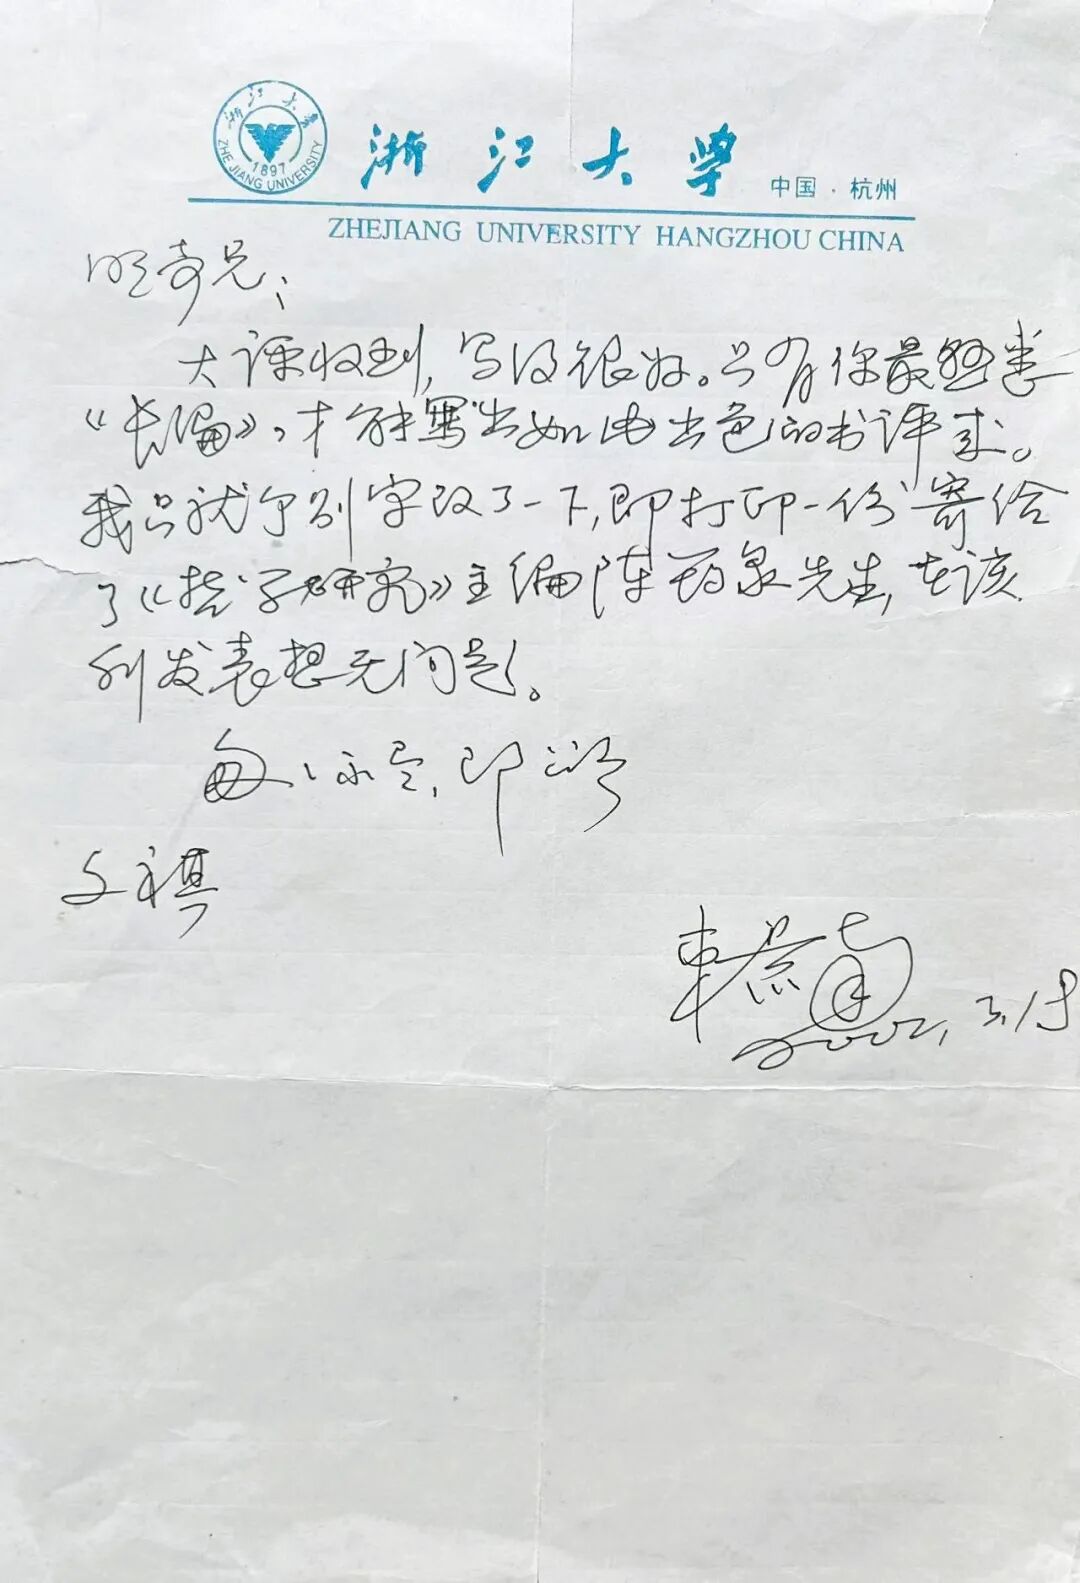 浙江大学
ZHEJIANG UNIVERSITY
1897
浙江大学 中国·杭州
ZHEJIANG UNIVERSITY HANGZHOU CHINA
明奇兄：
大评收到，写得很好。只有你最熟悉
《长编》，才能写出如此出色的书评来。
我只就个别字改了一下，即打印一份寄给
了《哲学研究》主编陈筠泉先生，在该
刊发表想无问题。
即颂
文祺
束景南
2002.3.15